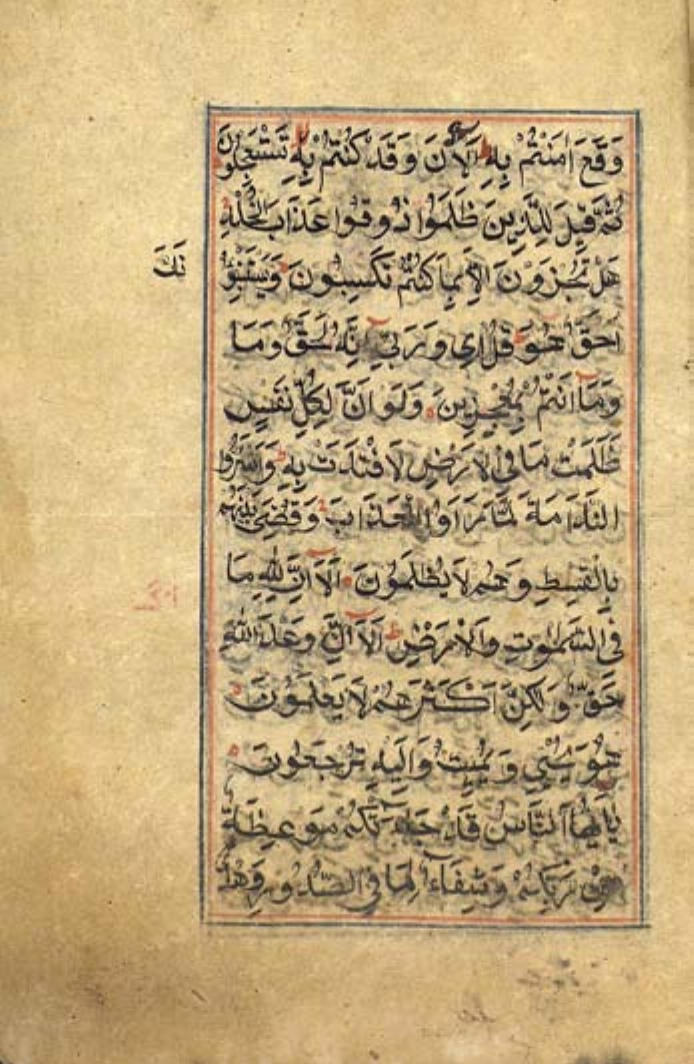 وَقَعَ اٰمَنْتُمْ بِهِ آلْاٰنَ وَقَدْ كُنْتُمْ بِهِ تَسْتَعْجِلُونَ
ثُمَّ قِيلَ لِلَّذِينَ ظَلَمُوا ذُوقُوا عَذَابَ الْخُلْدِ
هَلْ تُجْزَوْنَ اِلَّا بِمَا كُنْتُمْ تَكْسِبُونَ وَيَسْتَنْبِؤُ
نَكَ
اَحَقٌّ هُوَ قُلْ اِي وَرَبِّي اِنَّهُ لَحَقٌّ وَمَا
وَمَا اَنْتُمْ بِمُعْجِزِينَ وَلَوْ اَنَّ لِكُلِّ نَفْسٍ
ظَلَمَتْ مَا فِي الْاَرْضِ لَافْتَدَتْ بِهِ وَاَسَرُّوا
النَّدَامَةَ لَمَّا رَاَوُا الْعَذَابَ وَقُضِيَ بَيْنَهُمْ
بِالْقِسْطِ وَهُمْ لَا يُظْلَمُونَ اَلَا اِنَّ لِلّٰهِ مَا
فِي السَّمٰوٰتِ وَالْاَرْضِ اَلَا اِنَّ وَعْدَ اللّٰهِ
حَقٌّ وَلٰكِنَّ اَكْثَرَهُمْ لَا يَعْلَمُونَ
هُوَ يُحْيِي وَيُمِيتُ وَاِلَيْهِ تُرْجَعُونَ
يَا اَيُّهَا النَّاسُ قَدْ جَاءَتْكُمْ مَوْعِظَةٌ
مِنْ رَبِّكُمْ وَشِفَاءٌ لِمَا فِي الصُّدُورِ وَهُدًى